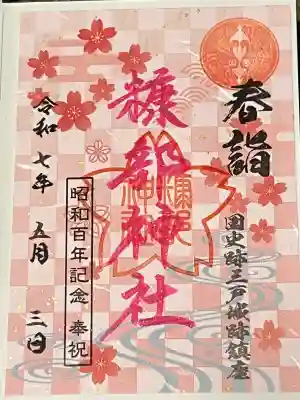 春詣
国史跡三戸城跡鎮座
糠部神社
昭和百年記念 奉祝
令和七年 五月 三日